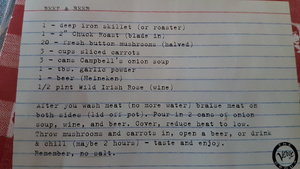 BEEF & BEER
1 - deep iron skillet (or roaster)
1 - 2" Chuck Roast (blade in)
20 - fresh button mushrooms (halved)
3 - cups sliced carrots
3 - cans Campbell's onion soup
1 - tbs. garlic powder
1 - beer (Heineken)
1/2 pint Wild Irish Rose (wine)
After you wash meat (no more water) braise meat on
both sides (lid off pot). Pour in 2 cans of onion
soup, wine, and beer. Cover, reduce heat to low.
Throw mushrooms and carrots in, open a beer, or drink
& chill (maybe 2 hours) - taste and enjoy.
Remember, no salt.